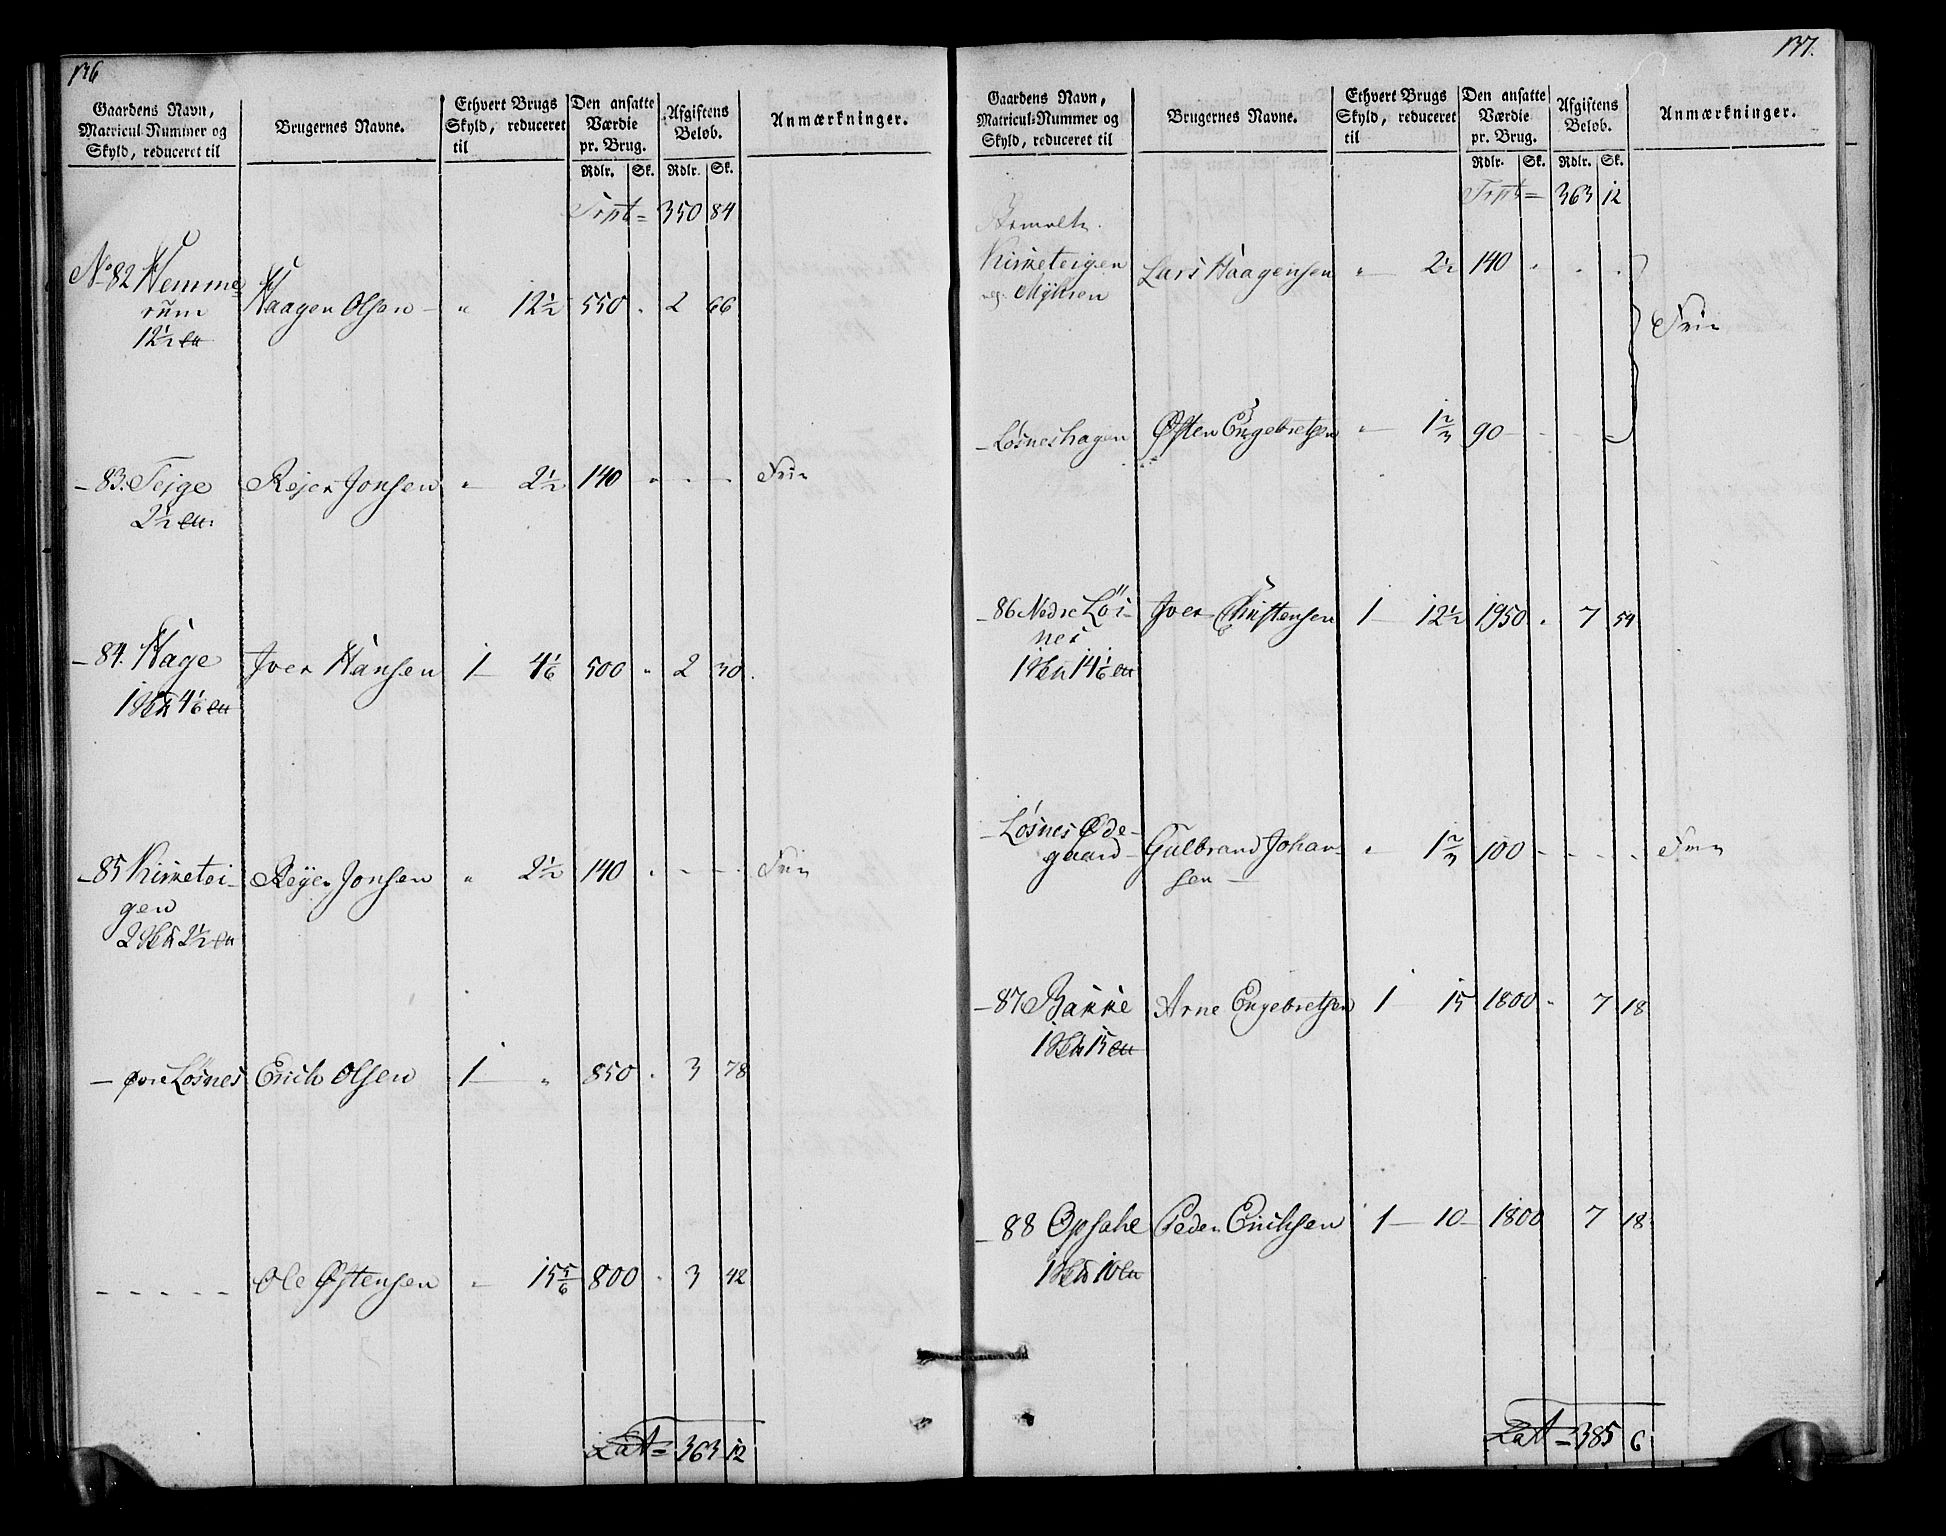 136
Gaardens Navn,
Matricul-Nummer og
Skyld, reduceret til
Brugernes Navne.
Ethvert Brugs
Skyld, reduceret
til
Den ansatte
Værdie
pr. Brug.
Rdlr. Sk.
Afgiftens
Beløb.
Rdlr. Sk.
Anmærkninger.
Trpt = 350 84
No. 82 Hemme-
rüm
12½
Haagen Olsen - " 12½ 550 . 2 66
- 83. Tejge
2½
Rejer Jonsen " 2½ 140 " - - Frie
- 84. Hage
1 4⅙
Iver Hansen 1 - 4⅙ 500 " 2 30.
- 85 Kirketei-
gen
2 2½
Rejer Jonsen " 2½ 140 . - - . Frie
- øvre Løsnes Erich Olsen 1 - " 850 . 3 78
- - - - - Ole Østensen - 15⅚ 800 " 3 42
Lat = 363 12
137.
Gaardens Navn,
Matricul-Nummer og
Skyld, reduceret til
Brugernes Navne.
Ethvert Brugs
Skyld, reduceret
til
Den ansatte
Værdie
pr. Brug.
Rdlr. Sk.
Afgiftens
Beløb.
Rdlr. Sk.
Anmærkninger.
Trpt = 363 12
Kirketeigen
Lars Haagensen " - 2½ 140 . . .
Frie
- Løsneshagen Østen Engebretsen " - 1⅔ 90 - - - -
- 86 Nedre Løs-
nes
1 14⅙
Iver Christensen 1 - 12½ 1950 . 7 54
- Løsnes Øde-
gaard -
Gulbrand Johan-
sen -
" 1⅔ 100 - - - . Frie
- 87 Bakke
1 15
Arne Engebretsen 1 - 15 1800 - 7 18
- 88 Opsahl
1 10
Peder Erichsen 1 - 10 - 1800 7 18
Lat = 385 6